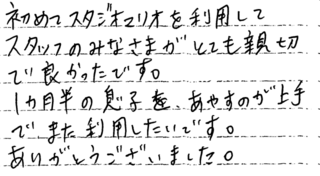 初めてスタジオマリオを利用して
スタッフのみなさまがとても親切
で良かったです。
1カ月半の息子を、あやすのが上手
でまた利用したいです。
ありがとうございました。